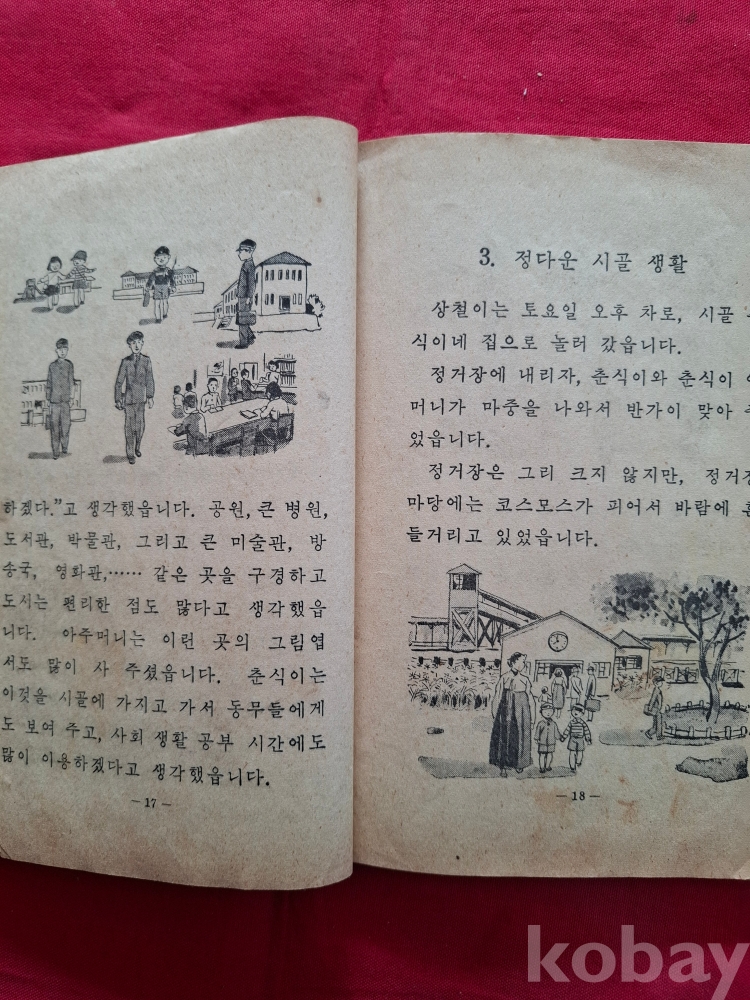 하겠다.”고 생각했읍니다. 공원, 큰 병원,
도서관, 박물관, 그리고 큰 미술관, 방
송국, 영화관,…… 같은 곳을 구경하고
도시는 편리한 점도 많다고 생각했읍
니다. 아주머니는 이런 곳의 그림엽
서도 많이 사 주셨읍니다. 춘식이는
이것을 시골에 가지고 가서 동무들에게
도 보여 주고, 사회 생활 공부 시간에도
많이 이용하겠다고 생각했읍니다.
— 17 —
3. 정다운 시골 생활
상철이는 토요일 오후 차로, 시골
식이네 집으로 놀러 갔읍니다.
정거장에 내리자, 춘식이와 춘식이
머니가 마중을 나와서 반가이 맞아
었읍니다.
정거장은 그리 크지 않지만, 정거
마당에는 코스모스가 피어서 바람에
들거리고 있었읍니다.
— 18 —
kobay